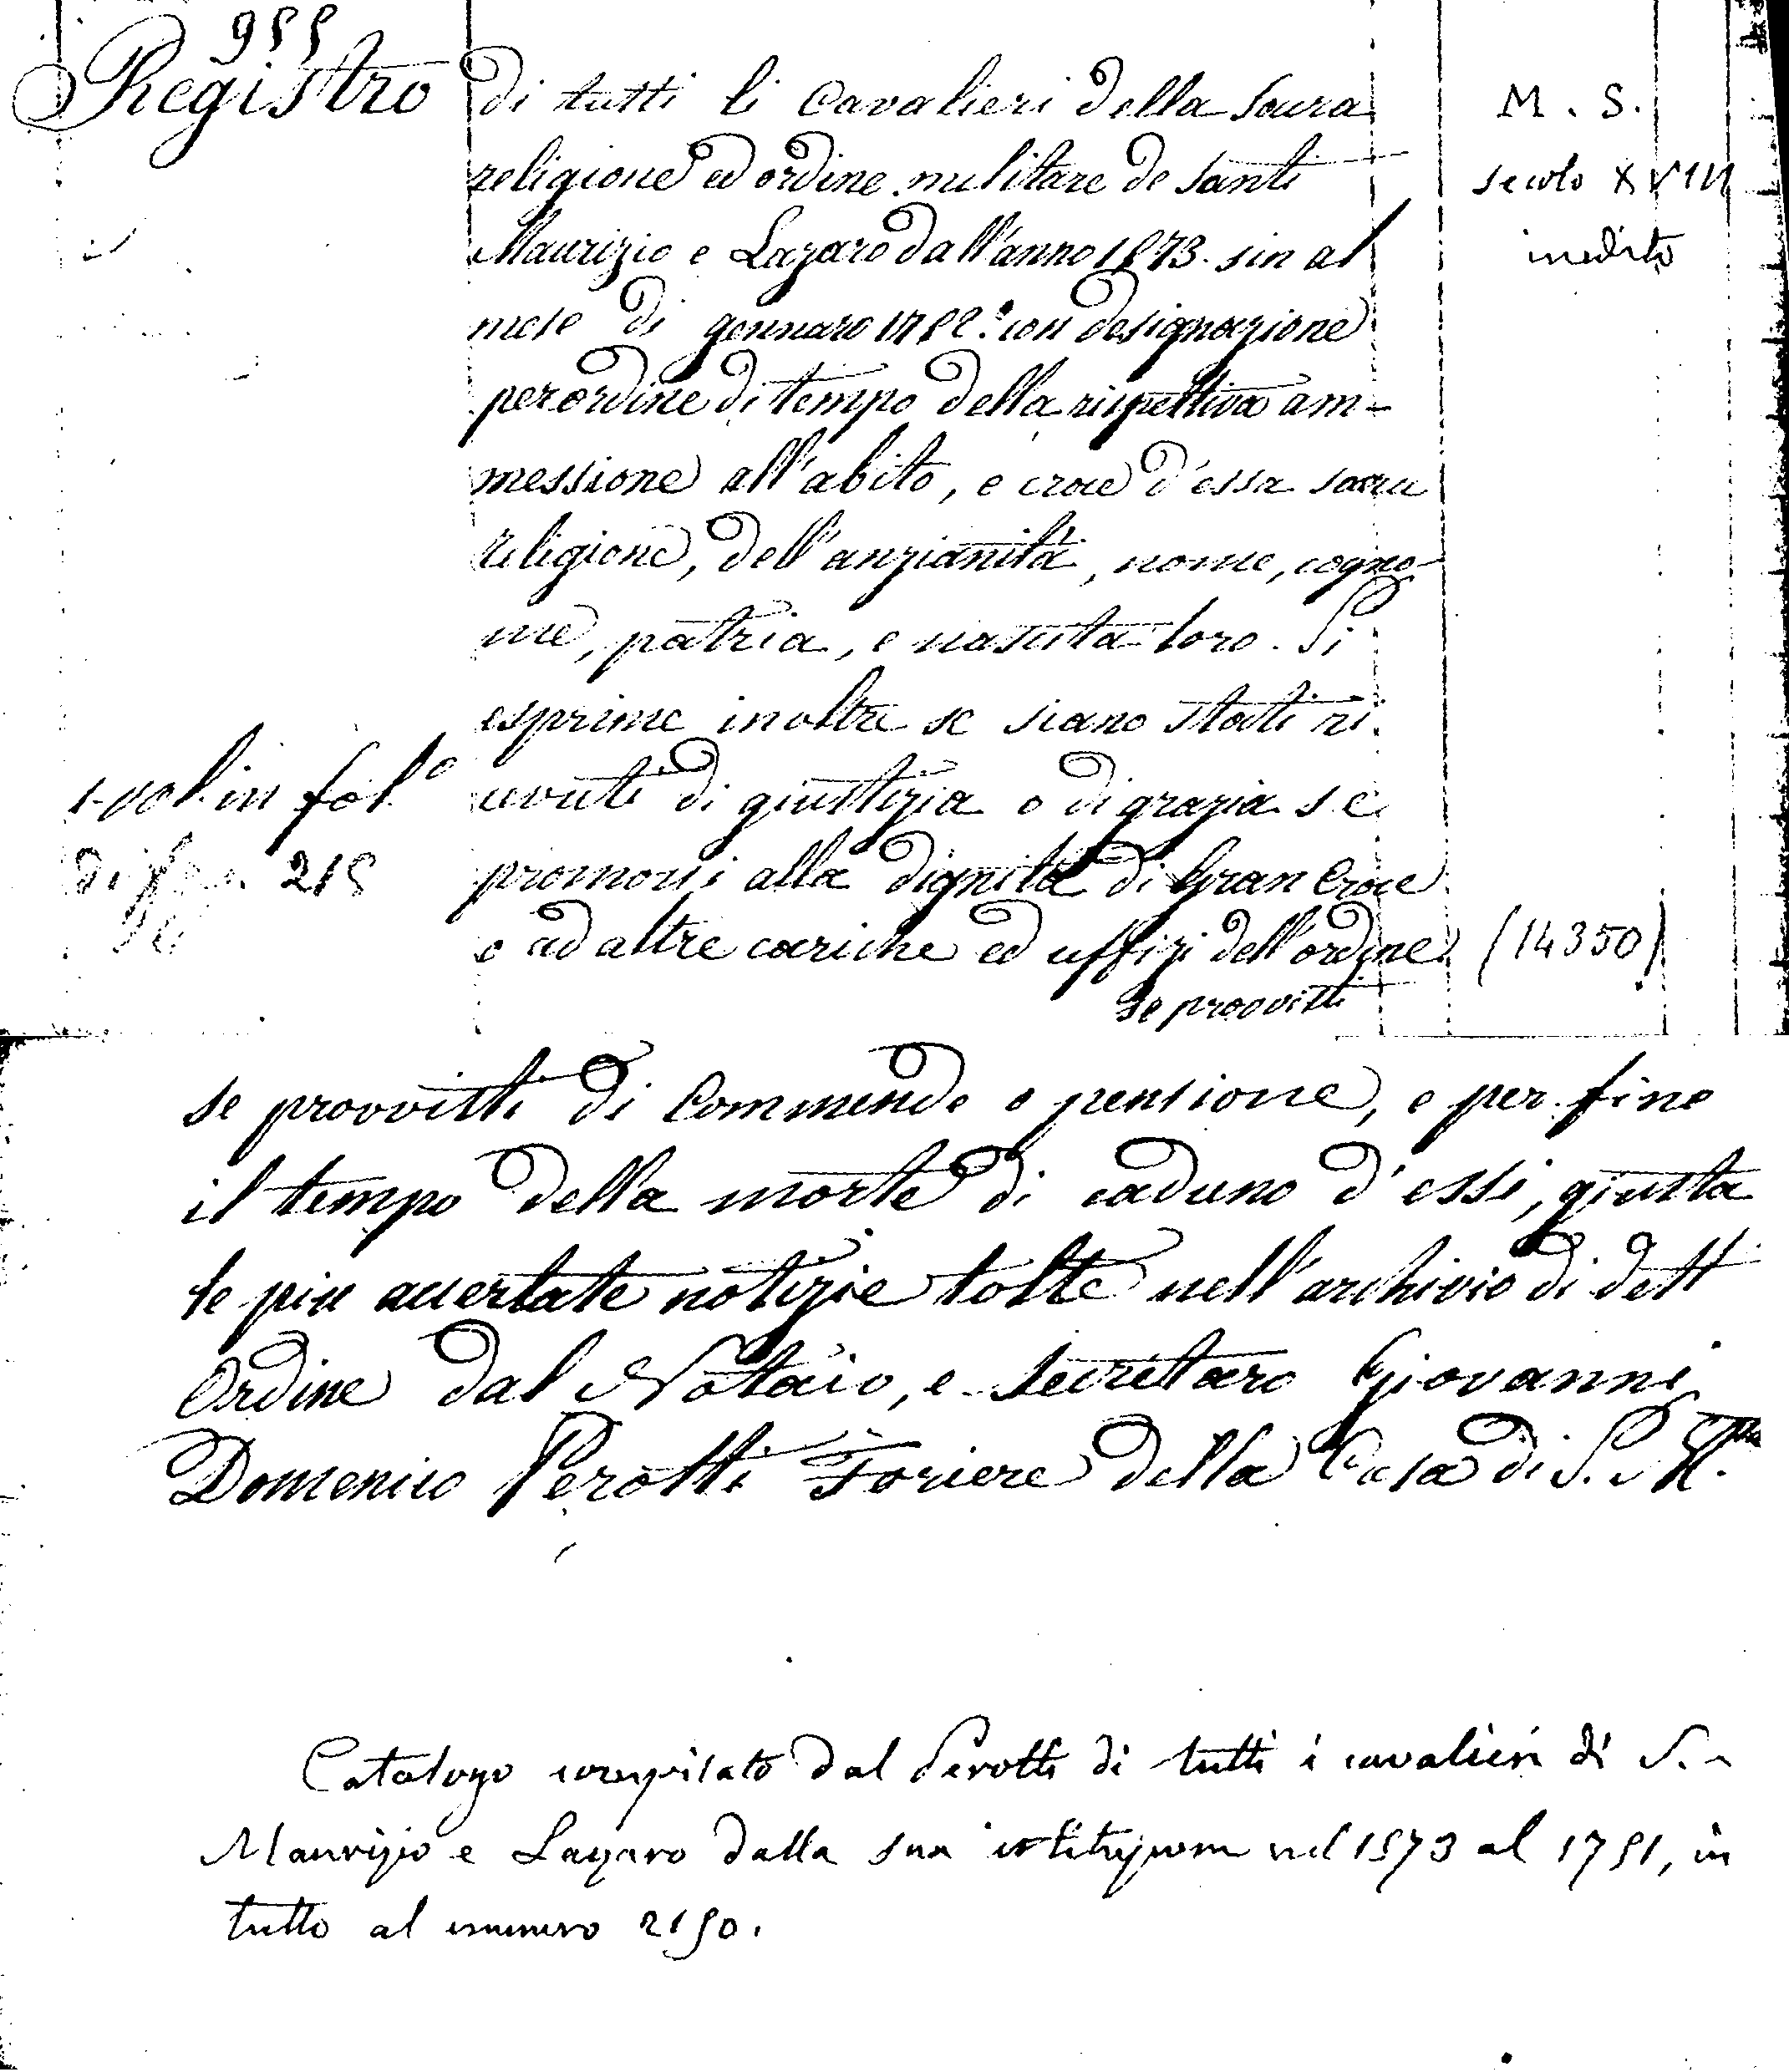 955
Registro di tutti li Cavalieri della Sacra M. S.
religione ed ordine militare de Santi secolo XVIII
Maurizio e Lazaro dall'anno 1573. sin al inedito
mese di gennaro 1752. con designazione
per ordine di tempo della rispettiva am-
messione all'abito, e croce d'essa sacra
religione, dell'anzianità, nome, cogno-
me, patria, e nascita loro. Si
esprime inoltre se siano stati ri.
1. vol. in fol.o cevuti di giustizia o di grazia se
di 215 promossi alla dignità di Gran Croce
o ad altre cariche ed uffizi dell'ordine (14350)
se provvisti
se provvisti di Commende o pensione, e per fine
il tempo della morte di caduno d'essi, giusta
le più accertate notizie tolte nell'archivio di dett
Ordine dal Notaio, e Secretaro Giovanni
Domenico Perotti Foriere della Casa di S. M.
Catalogo compilato dal Perotti di tutti i cavalieri di S.
Maurizio e Lazaro dalla sua istituzione nel 1573 al 1751, in
tutto al numero 2150.